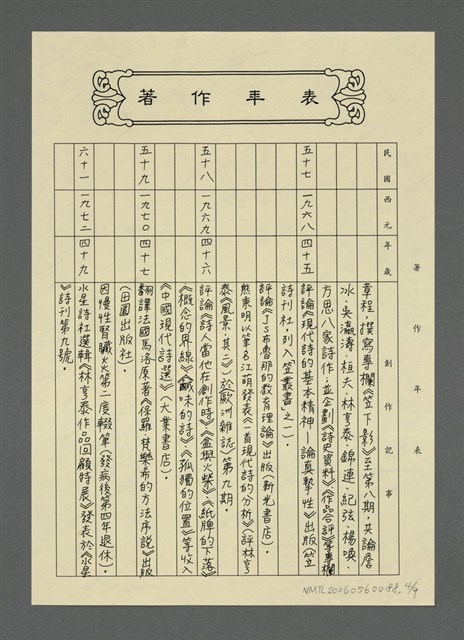 表年作著
著作年表
民國
西元
年歲
著作創作記事
章程，撰寫專欄《笠下影》至第八期，共論詹
冰、吳瀛濤、桓夫、林亨泰、錦連、紀弦、楊喚、
方思八家詩作，並企劃《詩史資料》《作品合評》等專欄
五十七
一九六八
四十五
評論《現代詩的基本精神—論真摯性》出版（笠
詩刊社，列入笠叢書之一）。
評論《JS布魯那的教育理論》出版（新光書店）。
熊秉明以筆名江萌發表《一首現代詩的分析》（評林亨
泰《風景其二》）於《歐洲雜誌》第九期。
五十八
一九六九
四十六
評論《詩人當他在創作時》《盒與火柴》《紙牌的下落》
《概念的界線》《鹹味的詩》《孤獨的位置》等收入
《中國現代詩選》（大業書店）。
五十九
一九七〇
四十七
翻譯法國馬洛原著《保羅·梵樂希的方法序說》出版
（田園出版社）。
因慢性腎臟炎第二度輟筆（發病後第四年退休）。
六十一
一九七二
四十九
水星詩社選輯《林亨泰作品回顧特展》發表於《水星
》詩刊第九號。
NMTL20060560088. 4/9